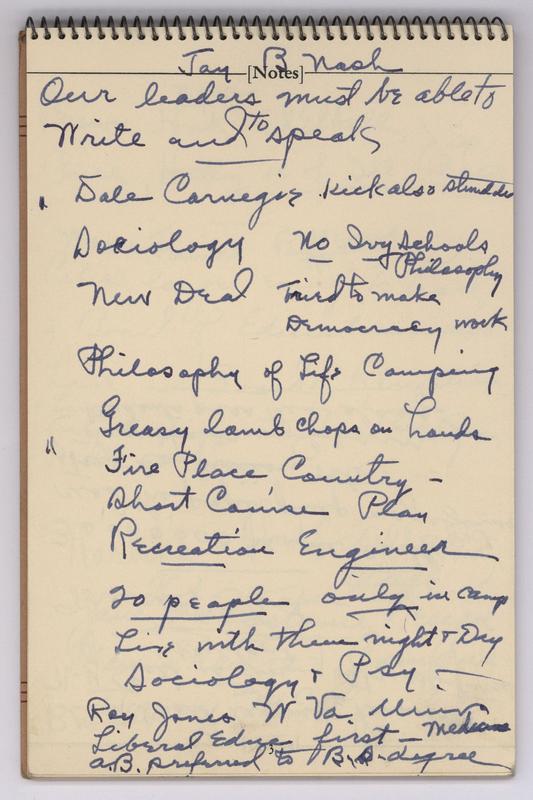 Jay B Nash
[Notes]
Our leaders must be able to
Write and to speak
Dale Carnegie kick also
Sociology No Ivy Schools
Philosophy
New Deal Tried to make
Democracy work
Philosophy of Life Camping
Greasy lamb chops on hands
" Fire Place Country -
Short Course Plan
Recreation Engineer
20 people only in camp
Live with them night + Day
Sociology + Psy -
Roy Jones W Va Univ
Liberal Educ first - Medicine
A.B. preferred to B.S. degree